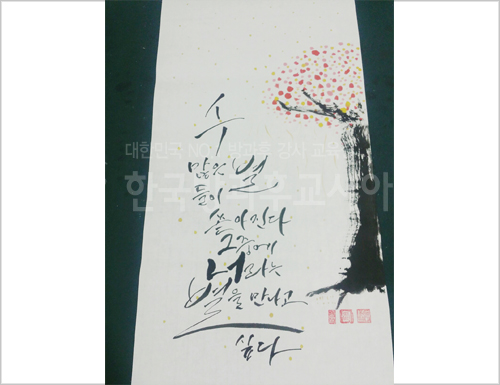 수
많은 별
들이
쏟아진다
그중에
너라는
별을 만나고
싶다
대한민국 NO.1 방과후 강사 교육
한국방과후교사아